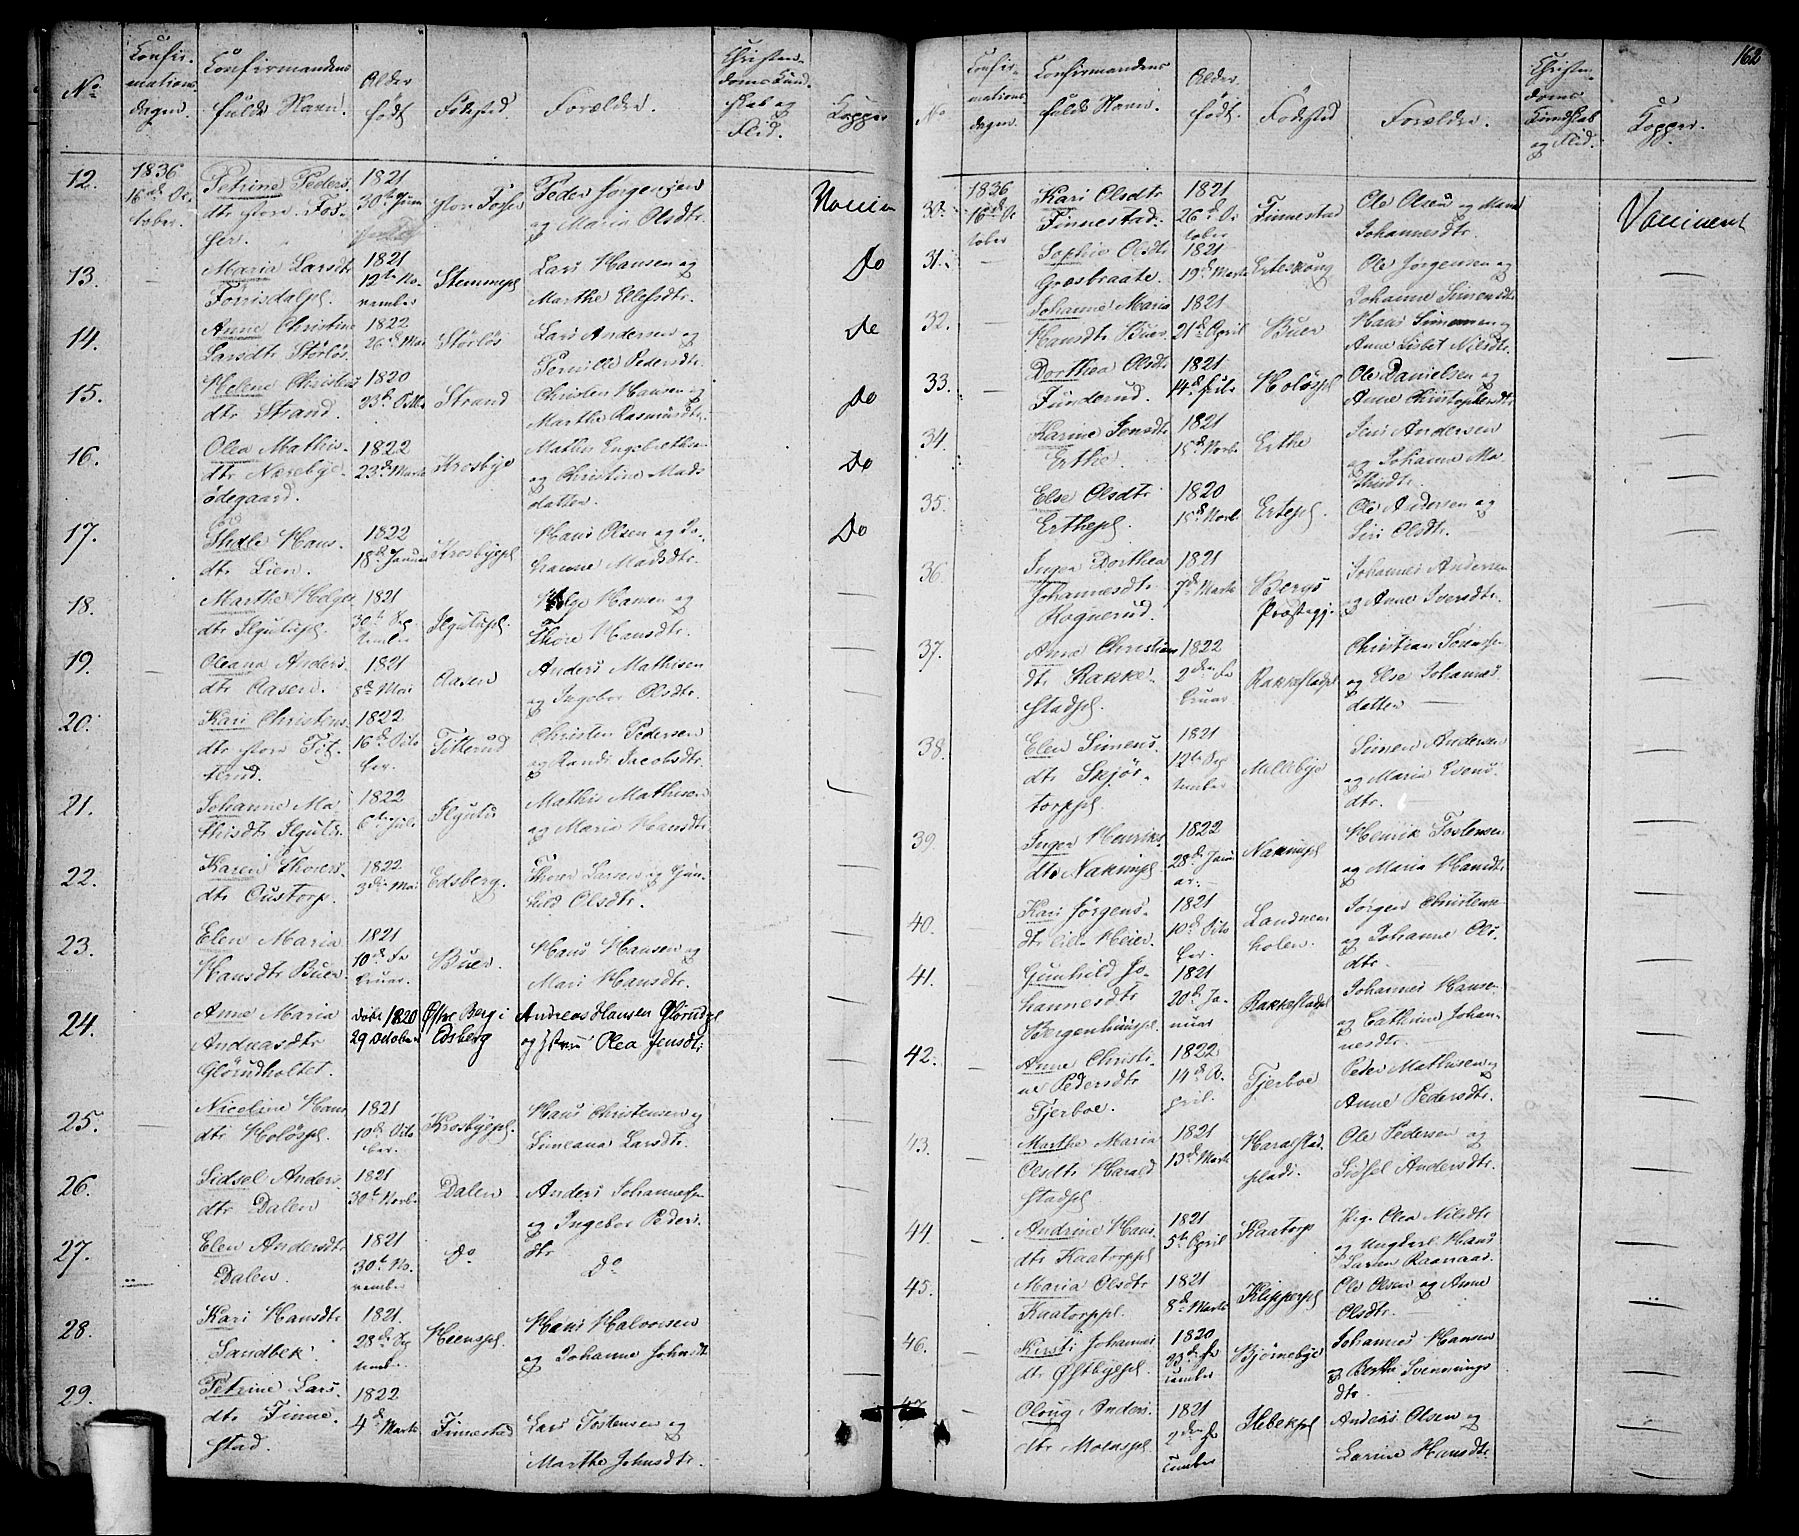 No
Confir-
mations
dagen.
Confirmandens
fulde Navn.
Alder
født
Fødested.
Forældre.
Christen-
doms Kund-
skab og
Flid.
Kopper
12.
1836
16de Oc-
tober.
Petrine Peders
dtr store Fos-
ser.
1821
30te Juni
store Fosser
Peder Jørgensen
og Maria Olsdtr.
Vaccin
13.
Maria Larsdtr
1821
12te No-
vember
Stemmepl
Lars Hansen og
Marthe
Do
14.
Anne Christine
Larsdtr Störlös.
1822
26de Mai
Störlös
Lars Andersen og
Pedersdtr.
Do
15.
Helene Christens
dtr Strand.
1820
23de Octbr
Strand
Christen Hansen og
Marthe Rasmusdtr.
Do
16.
Olea Mathis-
dtr Narebye-
ødegaard.
1822
23de Marts
Krosbye
Mathis Engebrethsen
og Christine Mads
datter.
Do
17.
Hans-
dtr Lien.
1822
18de Januar
Krosbyepl
Hans Olsen og Jo-
hanne Madsdtr.
Do
18.
Marthe Helges
dtr
1821
30te Sep
tember
Helge Hansen og
Thore Hansdtr.
19.
Oleana Anders.
dtr Aasen.
1821
8de Mai
Aasen
Anders Mathisen
og Ingebor Olsdtr.
20.
Kari Christens
dtr store Tit-
terud.
1822
16de Octo
ber.
Titterud
Christen Pedersen
og Randi Jacobsdtr.
21.
Johanne Ma
thisdtr
1822
6te Juli
Mathis Mathisen
og Maria Hansdtr.
22.
Karen Thores-
dtr Oustorp.
1822
3die Mai
Edsberg.
Thore Larsen og Gun-
hild Olsdtr.
23.
Elen Maria
Hansdtr Buer
1821
10de Fe
bruar.
Buer.
Hans Hansen og
Mari Hansdtr.
24.
Anne Maria
Andreasdtr
Glörudholtet.
døbt 1820
29 October
Østre Berg i
Edsberg
Andreas Hansen Glørudpl
og Olea Jensdtr:
25.
Nicoline Hans
dtr Holöspl.
1821
10de Octo
ber.
Krosbyepl.
Hans Christensen og
Simeana Larsdtr.
26.
Sidsel Anders
dtr Dalen
1821
30te Novbr
Dalen
Anders Johannessen
og Ingebor Peders.
dtr.
27.
Elen Andersdtr
Dalen.
1821
30te No-
vember
Do
Do
28.
Kari Hansdtr
Sandbek.
1821.
28de
temb.
Heenspl.
Hans Halvorsen
og Johanne Johnsdtr
29.
Petrine Lars-
dtr Finne-
stad.
1822
4de Marts
Finnestad
Lars Tostensen og
Marthe Johnsdtr.
162
No
Confir-
mations
dagen.
Confirmandens
fulde Navn.
Alder
født
Fødested
Forældre.
Christen
doms
Kundskab
og Flid.
Kopper.
30.
1836
16de Oc
tober
Kari Olsdtr
Finnestad.
1821
26de Oc
tober
Finnestad
Ole Olsen og
Johannesdtr.
Vaccineret
31.
Sophie Olsdtr
Grosbraate.
1821
19de Marts
Erteskoug
Ole Jørgensen og
Johanne Simensdtr
32.
Johanne Maria
Hansdtr Buer
1821
21de April
Buer
Hans Simensen og
Anne Lisbet Nilsdtr.
33.
Dorthea Olsdtr
Funderud.
1821
14de Febr
Holøspl
Ole Danielsen og
Anne Christophersdtr
34.
Karine Jensdtr
Erthe.
1821
15de Novbr
Erthe
Jens Andersen
og Johanne Ma-
thisdtr.
35.
Else Olsdtr
Erthepl.
1820
15de Novbr
Ertepl.
Ole Andersen og
Siri Olsdtr.
36.
Inger Dorthea
Johannesdtr
Rognerud.
1821
7de Marts
Bergs
Præstegj.
Johannes Andersen
og Anne Iversdtr.
37.
Anne Christians
dtr Rakke-
stadspl.
1822
2den Fe
bruar
Rakkestadpl
Christian
og Else Johannes-
datter
38.
Elen Simens-
dtr Skjør-
torppl.
1821
12te Sep
tember
Millebye
Simen Andersen
og Maria Evens-
dtr.
39.
Inger Henriks-
dtr Nakimpl.
1822
28de Janu
ar.
Nakimpl
Henrik Tostensen
og Maria Hansdtr.
40.
Kari Jørgens-
dtr lille Heier.
1821
10de Octo
ber.
Landnem
holen.
Jørgen Christensen
og Johanne Ols-
dtr.
41.
Gunhild Jo-
hannesdtr
Bergenhuuspl.
1821
20de Ja-
nuar
Rakkestadpl
Johannes Hanse-
og Cathrine Johan-
nesdtr.
42.
Anne Christi-
ne Pedersdtr
Tjerboe.
1822
14de A-
pril.
Tjerboe
Peder Mathisen og
Anne Pedersdtr.
43.
Marthe Maria
Olsdtr Harald
stadpl
1821
13de Marts
Haralstad-
plads.
Ole Pedersen og
Sidsel Andersdtr.
44.
Andrine Hans
dtr Kaatorppl.
1821
5te April
Kaatorp
Pige Olea Nilsdtr
og Ungkarl Hans
Larsen Raanaas.
45.
Maria Olsdtr
Kaatorppl.
1821
8de Marts
Klipperpl
Ole Olsen og Anne
Olsdtr.
46.
Kirsti Johannes
dtr Østbyepl.
1820
23de De
cember
Bjørnebye
Johannes Hansen
og Berthe Svennings
dtr.
47.
Oloug Anders-
dtr Moenspl.
1821
2den De
cember
Hebekpl.
Anders Olsen og
Larine Hansdtr.